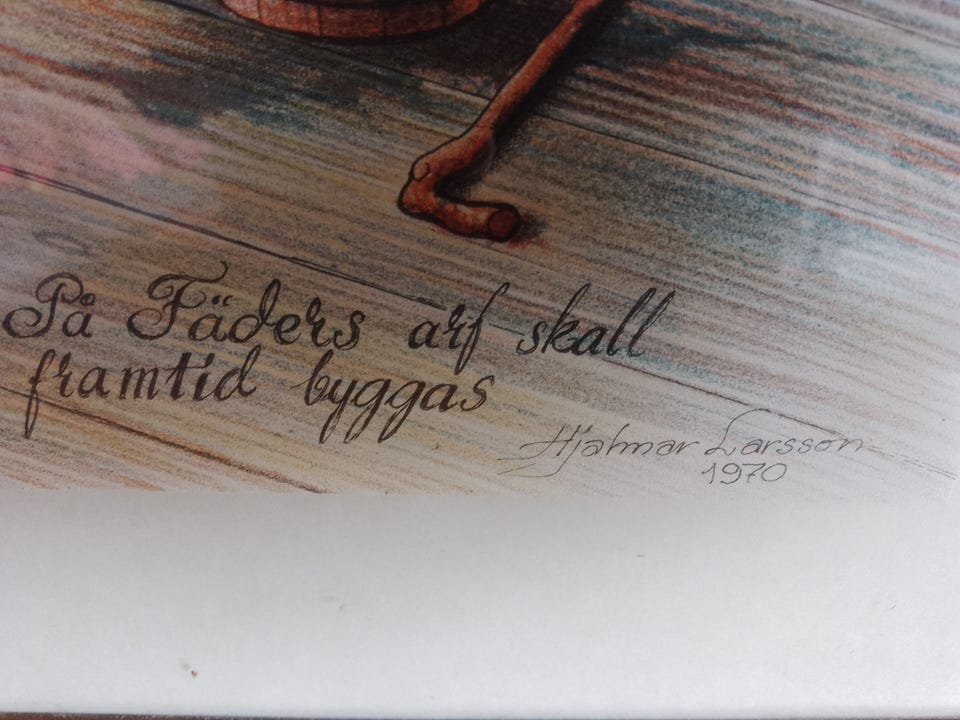 På Fäders arf skall
framtid byggas
Hjalmar Larsson
1970